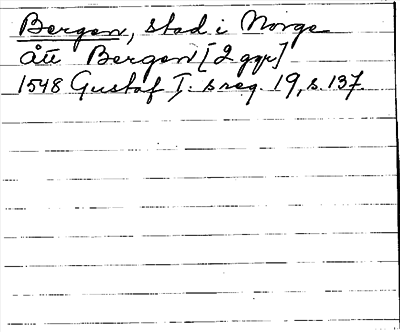 Bergen, stad i Norge
åtı Bergen [2 ggr]
1548 Gustaf I:s reg. 19, s. 137.